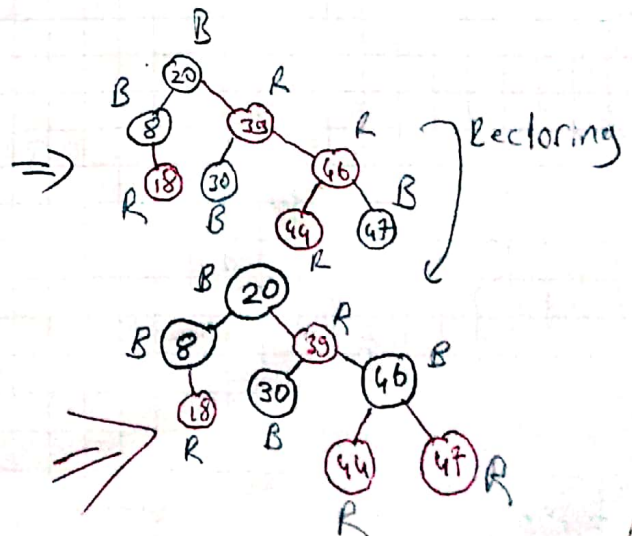 B
20
B
R
8
39
R
Rectoring
18
30
46
R
B
B
44
47
R
B
20
R
B
8
39
B
30
46
18
B
R
44
47
R
R